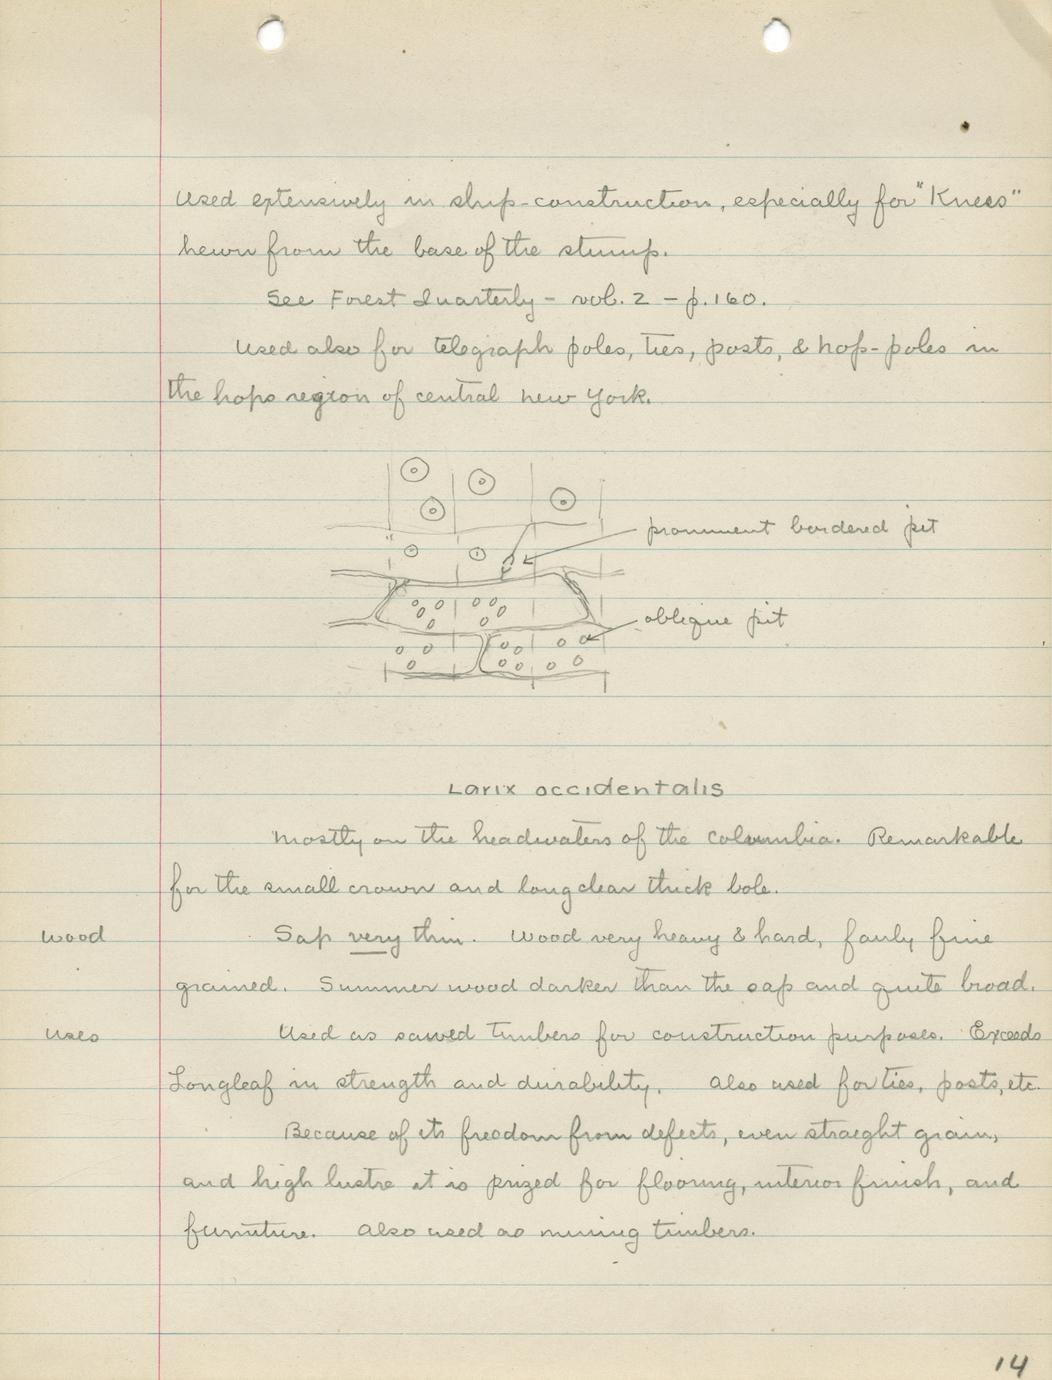 Used extensively in ship-construction, especially for "Knees"
hewn from the base of the stump.
See Forest Quarterly - vol. 2 - p. 160.
Used also for telegraph poles, ties, posts, & hop-poles in
the hops region of central new York.
prominent bordered pit
oblique pit
Larix occidentalis
Mostly on the headwaters of the Columbia. Remarkable
for the small crown and long clear thick bole.
Wood Sap very thin. Wood very heavy & hard, fairly fine
grained. Summer wood darker than the sap and quite broad.
Uses Used as sawed timbers for construction purposes. Exceeds
Longleaf in strength and durability. Also used for ties, posts, etc.
Because of its freedom from defects, even straight grain,
and high lustre it is prized for flooring, interior finish, and
furniture. Also used as mining timbers.
14